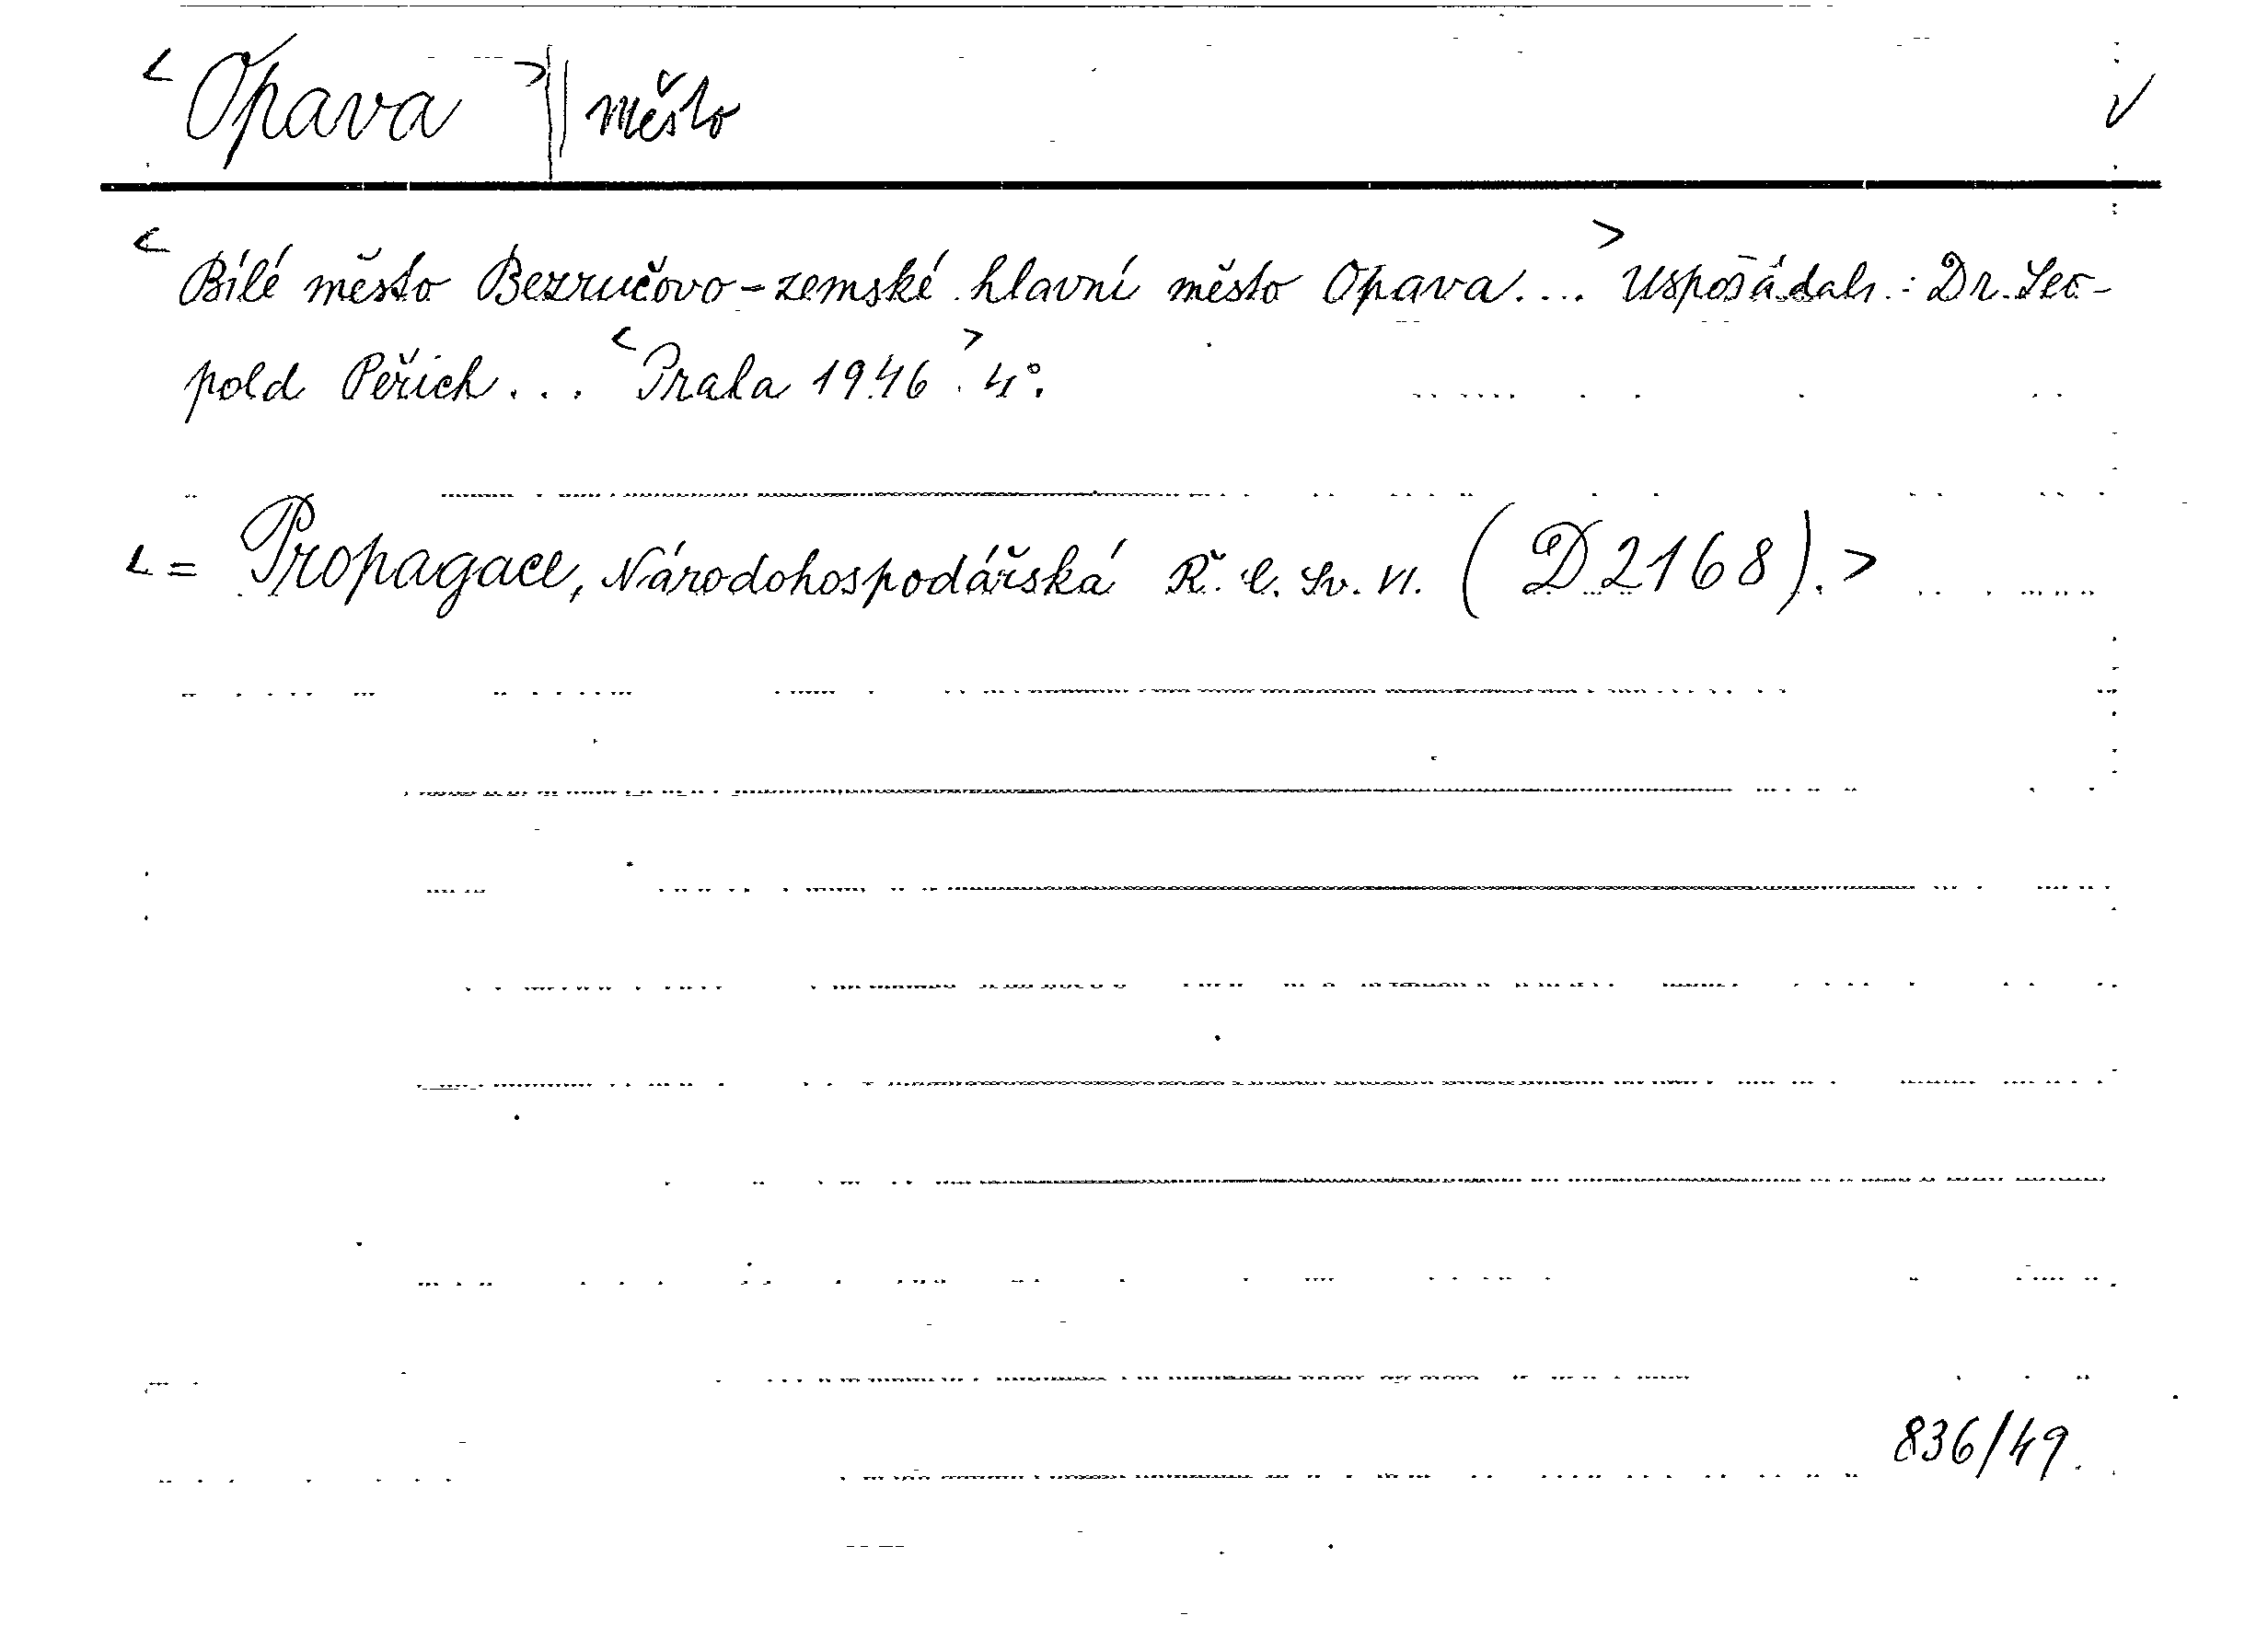 < Opava > || město √
< Bílé město Bezručovo - zemské hlavní město Opava.... > Uspořádali: Dr. Leo-
pold Peřich... < Praha 1946 >. 4°.
< = Propagace, Národohospodářská Ř. C. Sv. VI. (D 2168). >
836/49.